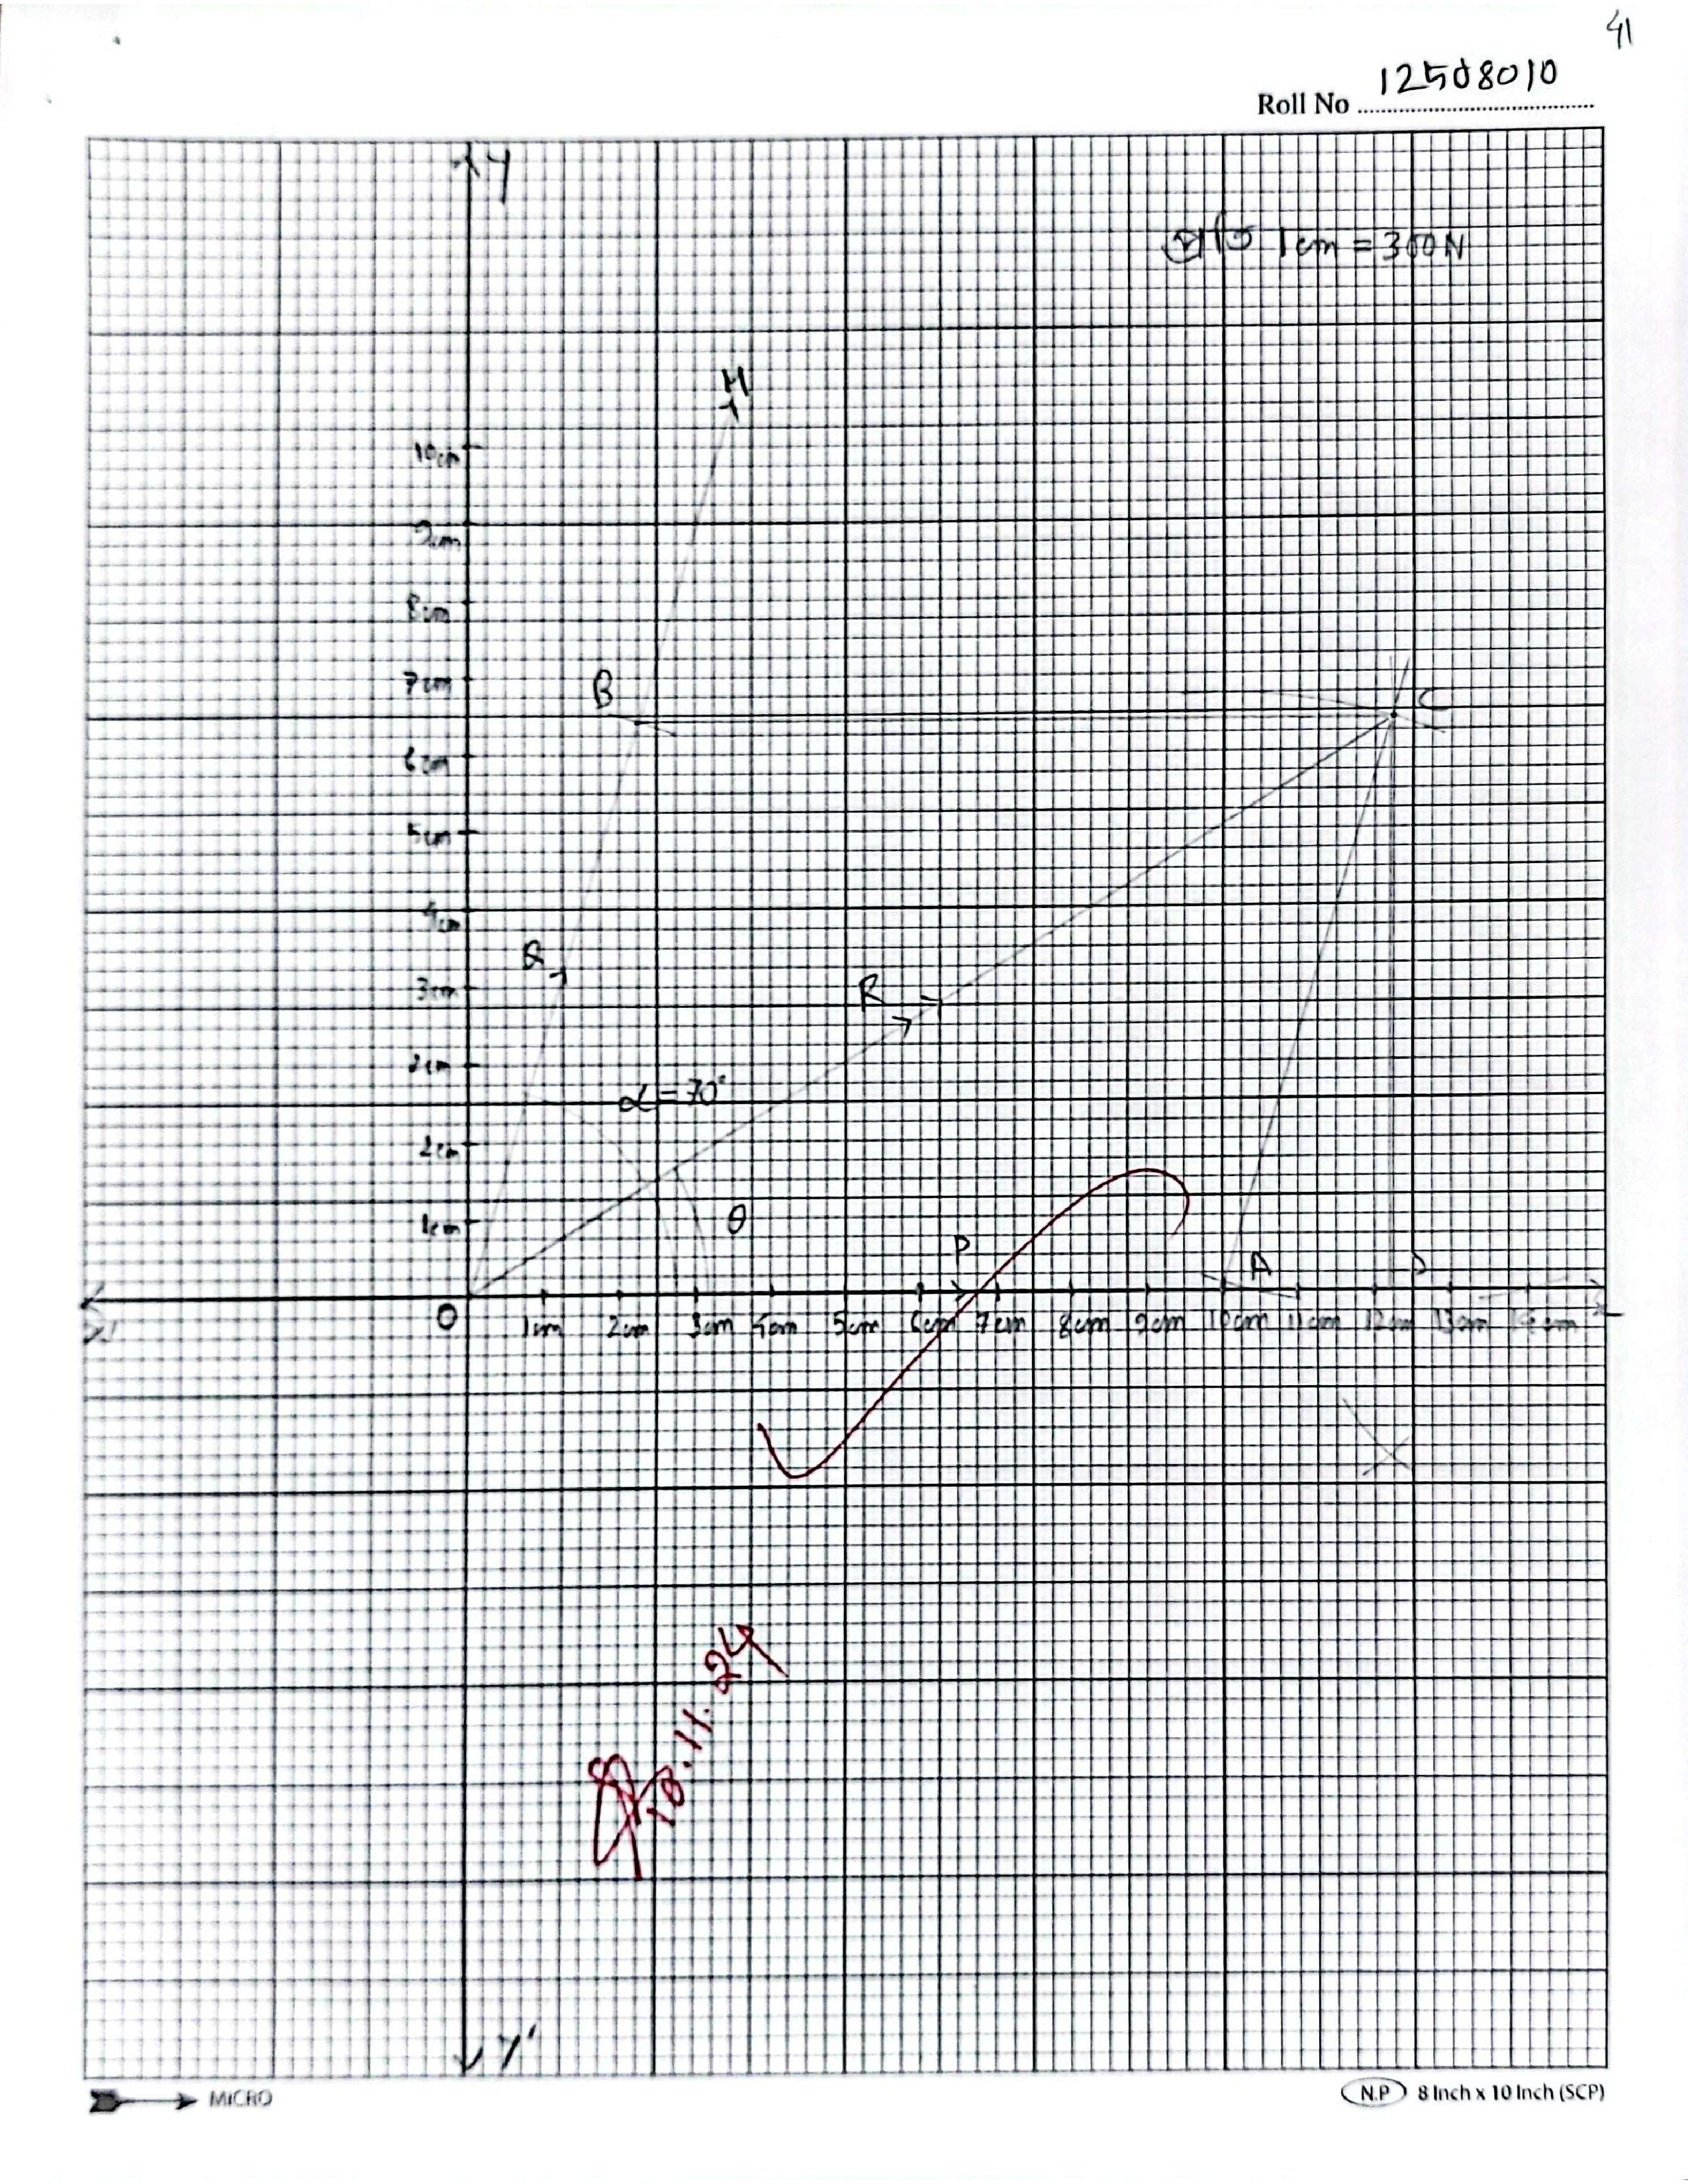 41
Roll No 12508010
Y
1cm = 300N
H
10cm
9cm
8cm
B
7cm
C
6cm
5cm
4cm
Q
3cm
R
2cm
α = 70°
2cm
θ
1cm
P
A
D
O
1cm 2cm 3cm 4cm 5cm 6cm 7cm 8cm 9cm 10cm 11cm 12cm 13cm 14cm
18.11.24
Y'
MICRO
N.P 8 Inch x 10 Inch (SCP)